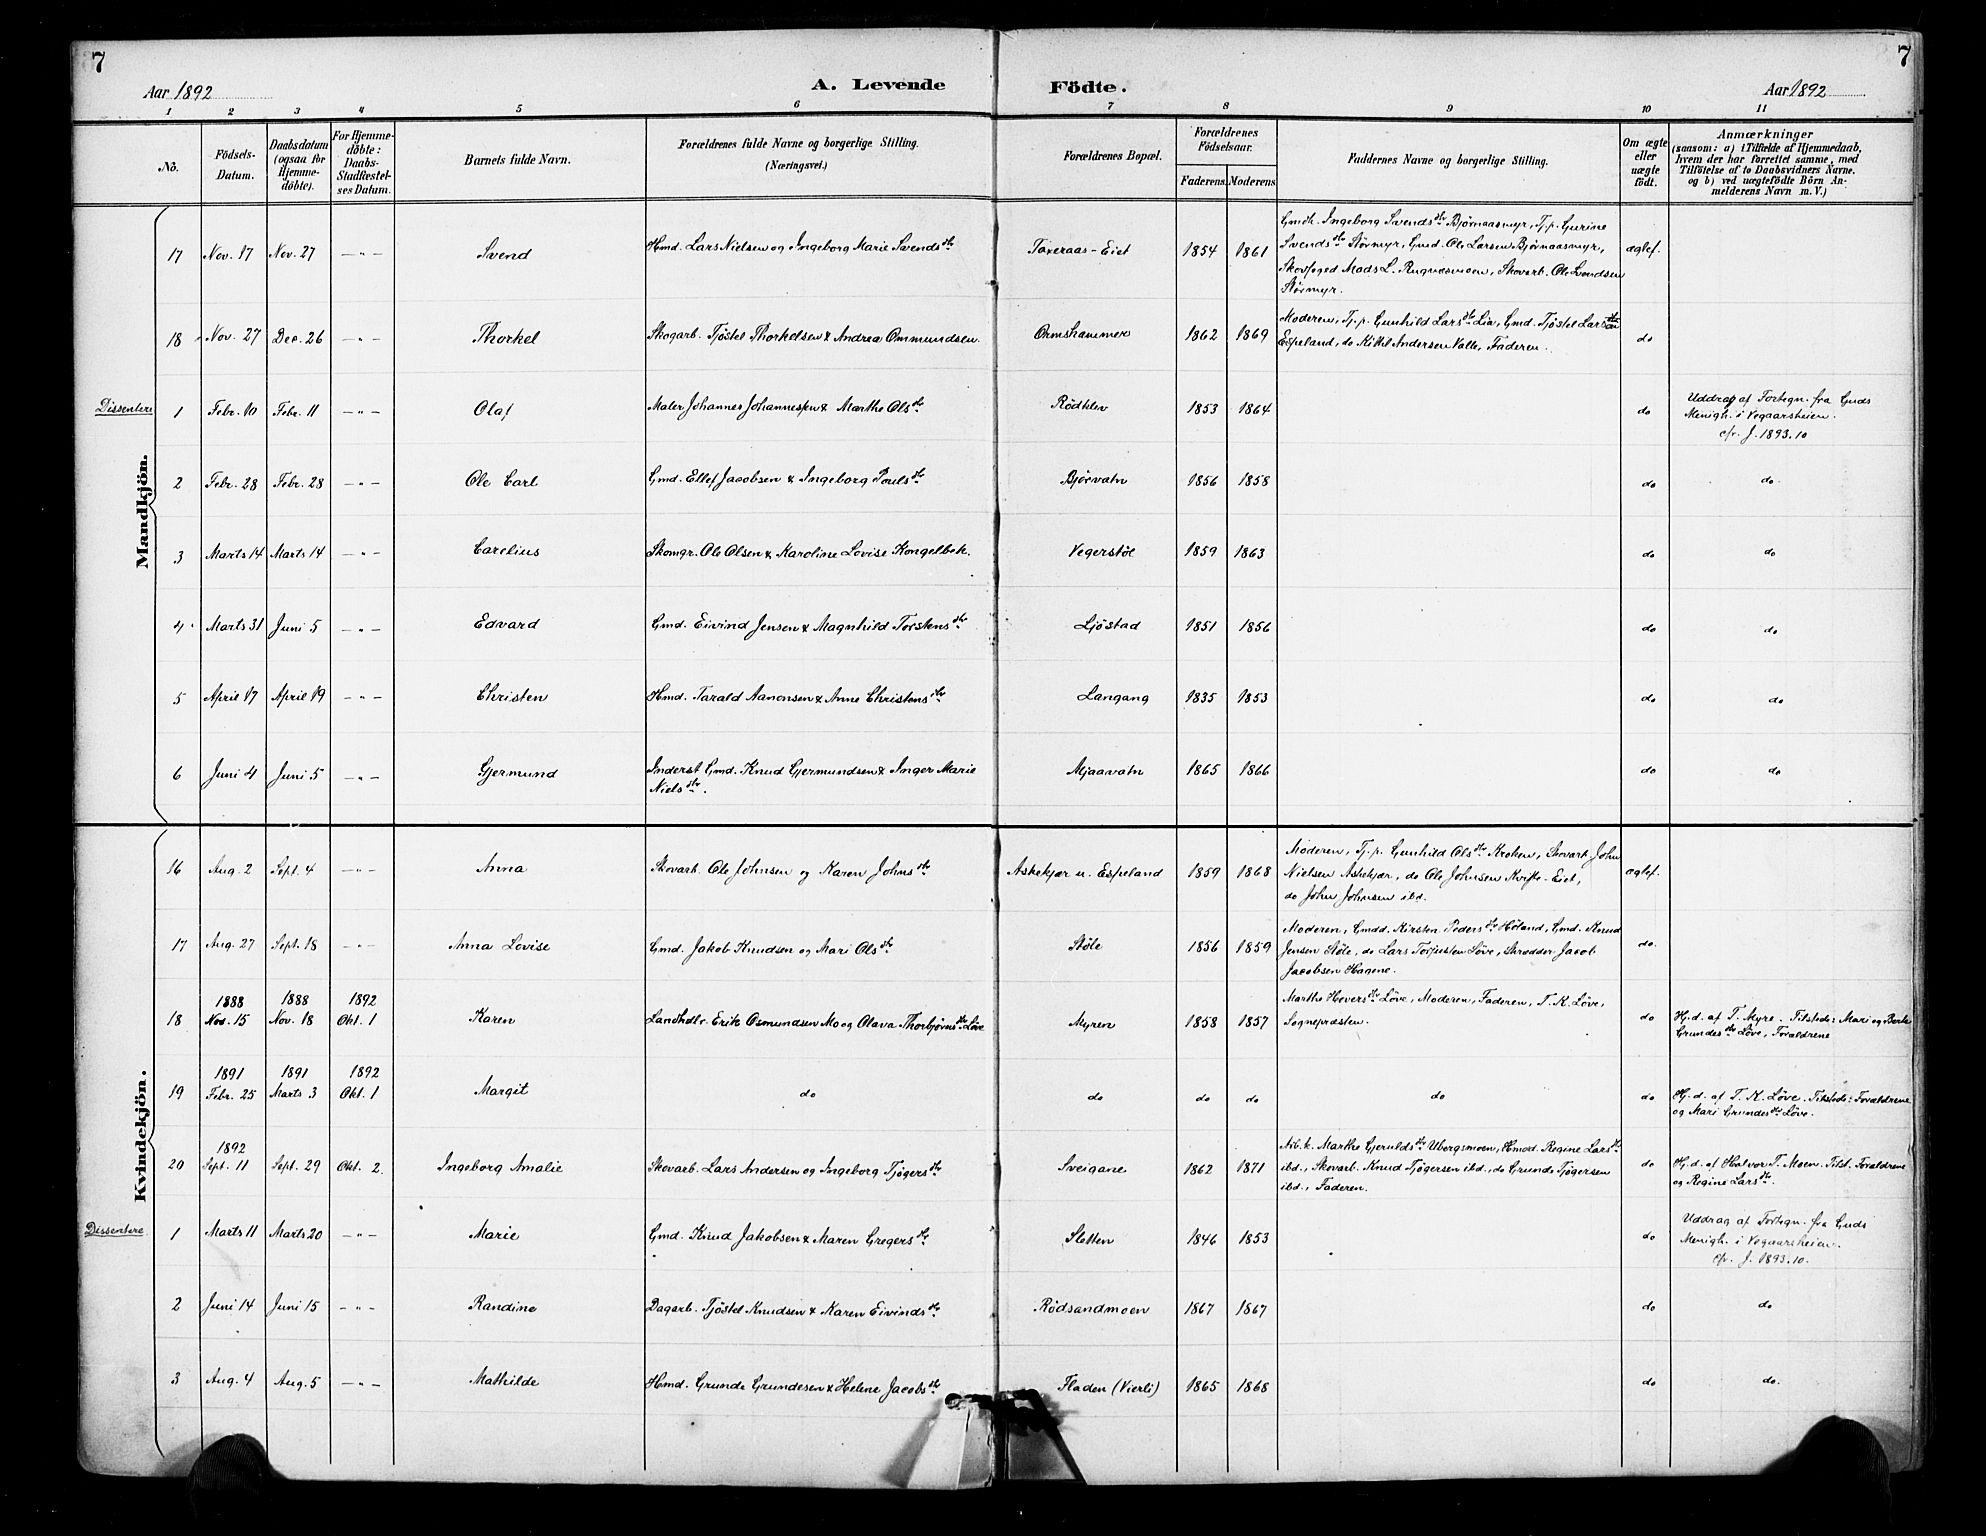 7
7
Aar 1892
A. Levende Födte.
Aar 1892
1 2 3 4 5 6 7 8 9 10 11
No.
Födsels-Datum.
Daabsdatum (ogsaa for Hjemmedöbte).
For Hjemmedöbte: Daabs-Stadfæstelses Datum.
Barnets fulde Navn.
Forældrenes fulde Navne og borgerlige Stilling. (Næringsvei.)
Forældrenes Bopæl.
Forældrenes Födselsaar.
Faderens. Moderens
Faddernes Navne og borgerlige Stilling.
Om ægte eller uægte födt.
Anmærkninger
(saasom: a) i Tilfælde af Hjemmedaab, hvem der har forrettet samme, med Tilföielse af to Daabsvidners Navne. og b) ved uægtefödte Börn Anmelderens Navn m. V.)
Mandkjön.
17 Nov. 17 Nov. 27 — " — Svend Hmd. Lars Nielsen og Ingeborg Marie Svendsdtr Taxeraas-Eiet 1854 1861 Gmdk. Ingeborg Svendsdtr Bjørnaasmyr, Tj.p. Gurine
Svendsdtr Størmyr, Gmd. Ole Larsen Bjørnaasmyr, ægtef.
Skovfoged Mads L. Rugnæsmoen, Skovarb. Ole Svendsen
Størmyr.
18 Nov. 27 Dec. 26 — " — Thorkel Skogarb. Tjöstel Thorkelsen & Andrea Ommundsen. Ormshammer 1862 1869 Moderen, Tj.p. Gunhild Larsdtr Lia, Gmd. Tjöstel Larsen do
Espeland, do Kittil Andersen Valle, Faderen.
Dissentere 1 Febr. 10 Febr. 11 — " — Olaf Maler Johannes Johannessen & Marthe Olsdtr Rödklev 1853 1864 do Uddrag af Fortegn. fra Guds
Menigh. i Vegaarsheien.
cfr. J. 1893.10
2 Febr. 28 Febr. 28 — " — Ole Carl Gmd. Ellef Jacobsen & Ingeborg Poulsdtr Bjørvatn 1856 1858 do do
3 Marts 14 Marts 14 — " — Carelius Skomgr. Ole Olsen & Karoline Lovise Kongelbek. Vegerstöl 1859 1863 do do
4 Marts 31 Juni 5 — " — Edvard Gmd. Eivind Jensen & Magnhild Torstensdtr Ljöstad 1851 1856 do do
5 April 17 April 19 — " — Christen Hmd. Tarald Aanonsen & Anne Christensdtr Langang 1835 1853 do do
6 Juni 4 Juni 5 — " — Gjermund Inderst Gmd. Knud Gjermundsen & Inger Marie Mjaavatn 1865 1866 do do
Nielsdtr.
Kvindekjön.
16 Aug. 2 Sept. 4 — " — Anna Skovarb. Ole Johnsen og Karen Johnsdtr Askekjær u. Espeland 1859 1868 Moderen, Tj.p. Gunhild Olsdtr Kroken, Skovarb. John
Nielsen Askekjær, do Ole Johnsen Kvifte-Eiet, ægtef.
do John Johnsen ibd.
17 Aug. 27 Sept. 18 — " — Anna Lovise Gmd. Jakob Knudsen og Mari Olsdtr Støle 1856 1859 Moderen, Gmdd. Kirsten Pedersdtr Höland, Gmd. Knud do.
Jensen Støle, do Lars Torjusten Löve, Skrædder Jacob
Jacobsen Hagene.
1888 1888 1892
18 Nov. 15 Nov. 18 Okt. 1 Karen Landhdlr. Erik Osmundsen Mo og Olava Thorbjørnsdtr Löve Myren 1858 1857 Marthe Hoversdtr Löve, Moderen, Faderen, T. K. Löve,
Sognepræsten. do Hj.d. af T. Myre. Tilstede: Mari og Berte
Grundesdtr Löve, Forældrene
1891 1891 1892
19 Febr. 25 Marts 3 Okt. 1 Margit do do do do do do Hj.d. af T. K. Löve. Tilstede: Forældrene
og Mari Grundesdtr Löve.
1892
20 Sept. 11 Sept. 29 Okt. 2. Ingeborg Amalie Skovarb. Lars Andersen og Ingeborg Tjögersdtr Sveigane 1862 1871 Nib.k. Marthe Gjeruldsdtr Ubergsmoen, Hmod. Regine Larsdtr
ibd., Skovarb. Knud Tjögersen ibd., do Grunde Tjögersen
ibd., Faderen. do Hj.d. af Halvor T. Moen. Tilst. Forældrene
og Regine Larsdtr.
Dissentere 1 Marts 11 Marts 20 — " — Marie Gmd. Knud Jakobsen & Maren Gregersdtr Sletten 1846 1853 do Uddrag af Fortegn. fra Guds
Menigh. i Vegaarsheien.
cfr. J. 1893.10.
2 Juni 14 Juni 15 — " — Randine Dagarb. Tjöstel Knudsen & Karen Eivindsdtr Rödsandmoen 1867 1867 do do
3 Aug. 4 Aug. 5 — " — Mathilde Hmd. Grunde Grundesen & Helene Jacobsdtr Fladen (Vierli) 1865 1868 do do.